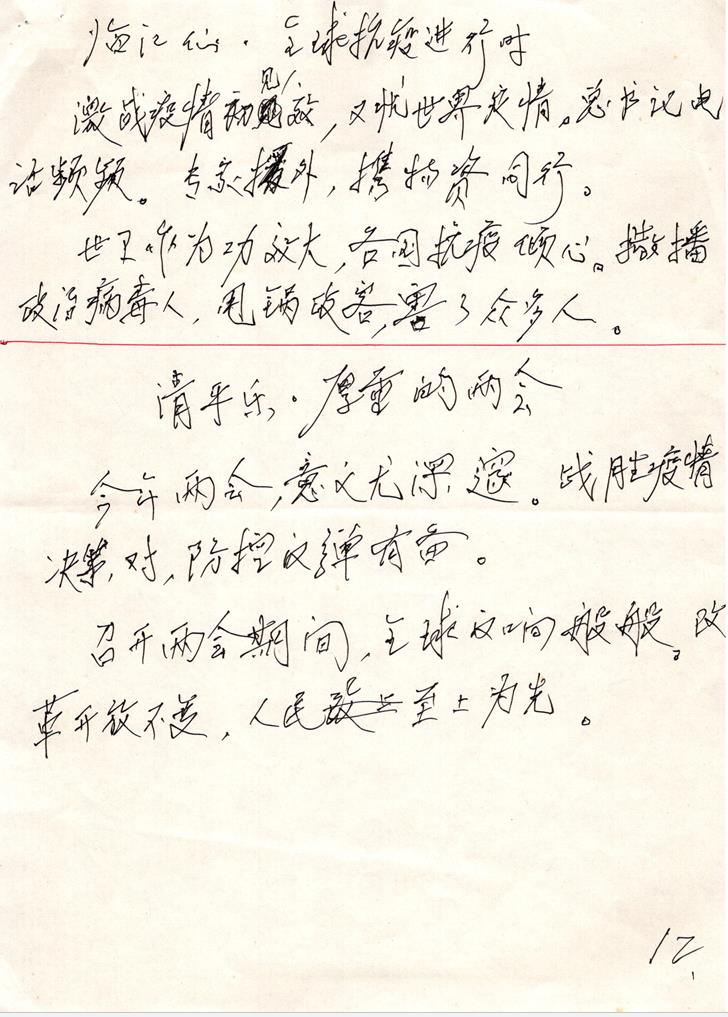 临江仙·全球抗疫进行时
激战疫情初见效,又忧世界疫情。总书记电
话频频。专家援外,携物资同行。
世卫作为功效大,各国抗疫倾心。撒播
政治病毒人,甩锅政客,害了众多人。
清平乐·厚重的两会
今年两会,意义尤深邃。战胜疫情
决策对,防控反弹有备。
召开两会期间,全球反响般般。改
革开放不变,人民至上为先。
12